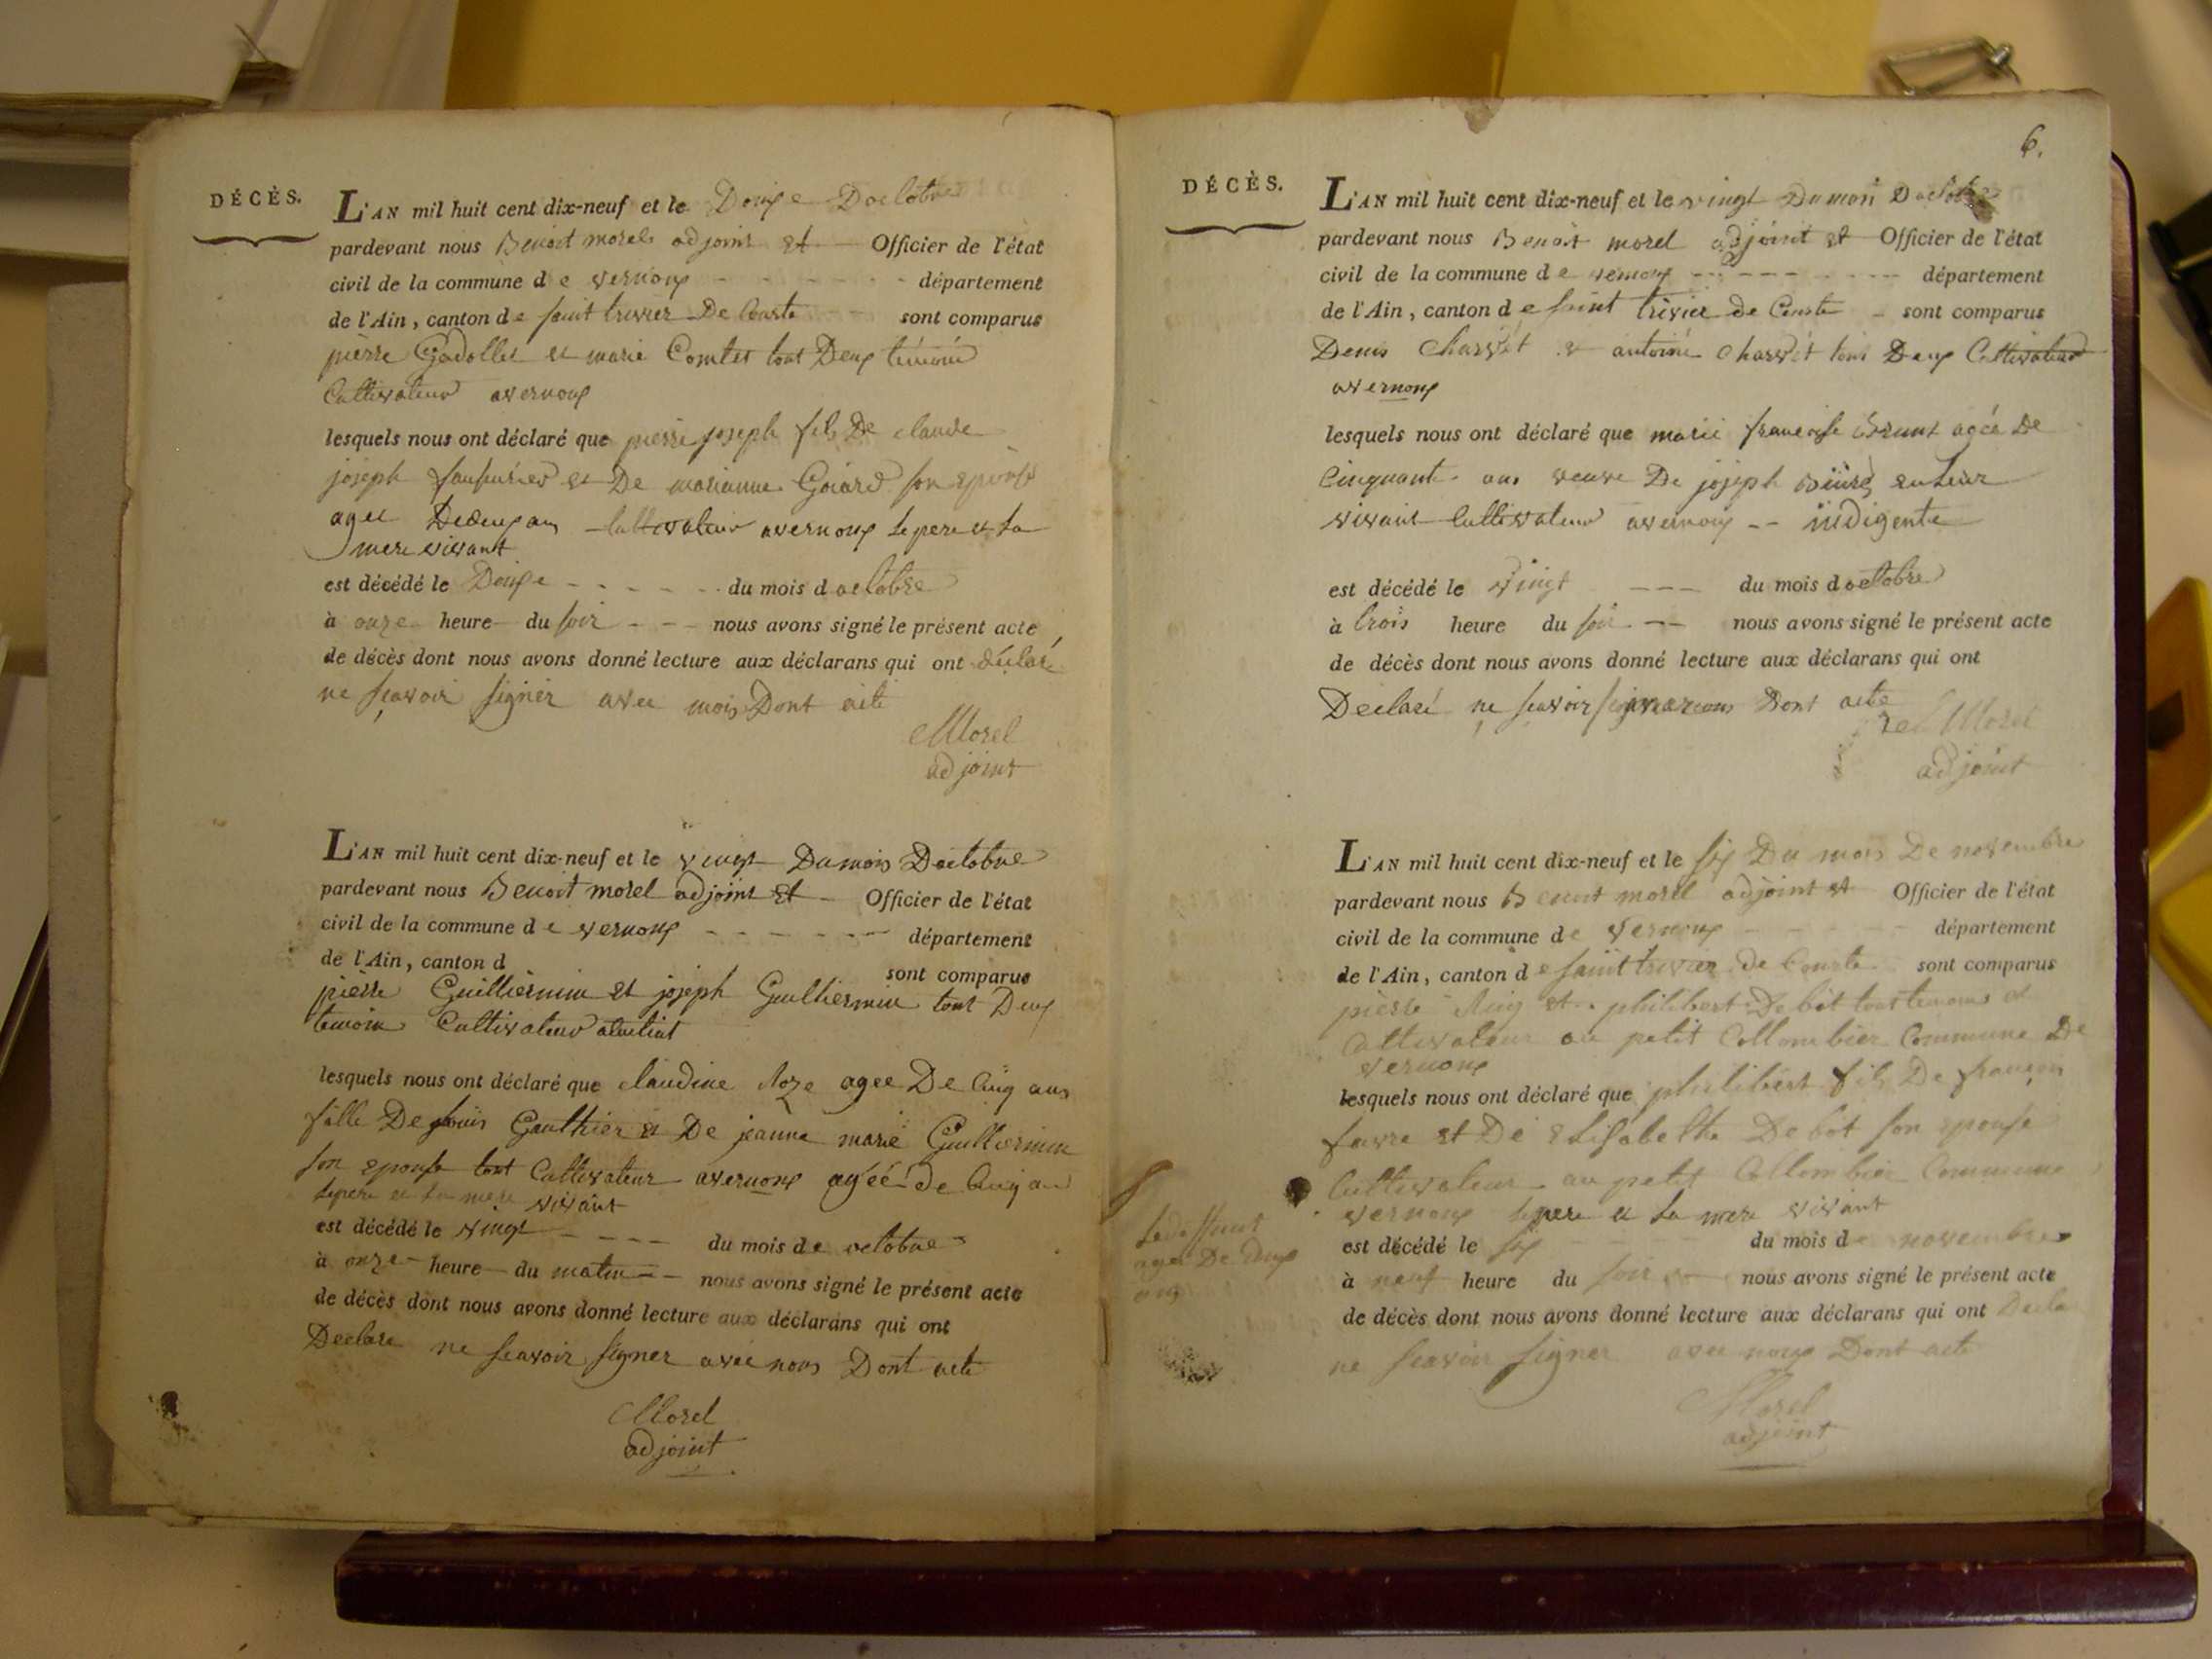 DÉCÈS.
L'AN mil huit cent dix-neuf et le Douze Doctobre
pardevant nous Benoit morel adjoint et Officier de l'état
civil de la commune de vernoux département
de l'Ain, canton de saint trivier De Courte sont comparus
pierre Gadollet et marie Comtet tout Deux témoin
Cultivateur avernoux
lesquels nous ont déclaré que pierre joseph fils De claude
joseph et De marianne Goiard son epouse
agee Dedeux an Cultivateur avernoux le pere et la
mere vivant
est décédé le Douze du mois doctobre
à onze heure du soir nous avons signé le présent acte
de décès dont nous avons donné lecture aux déclarans qui ont déclaré
ne scavoir signer avec mois Dont acte
Morel
adjoint
L'AN mil huit cent dix-neuf et le vingt Dumois Doctobre
pardevant nous Benoit morel adjoint et Officier de l'état
civil de la commune de vernoux département
de l'Ain, canton d sont comparus
pierre Guilliermin et joseph Guilliermin tout Deux
temoin Cultivateur
lesquels nous ont déclaré que claudine Roze agee De Cinq ans
fille De louis Gauthier et De jeanne marie Guilliermin
son epouse tout Cultivateur avernoux agéé de Cinq an
le pere et la mere vivant
est décédé le vingt du mois de octobre
à onze heure du matin nous avons signé le présent acte
de décès dont nous avons donné lecture aux déclarans qui ont
Declare ne scavoir signer avec nous Dont acte
Morel
adjoint
6.
DÉCÈS.
L'AN mil huit cent dix-neuf et le vingt Dumois Doctobre
pardevant nous Benoit morel adjoint et Officier de l'état
civil de la commune de vernoux département
de l'Ain, canton de saint trivier de Courte sont comparus
Denis Charvét et antoine Charvét tous Deux Cultivateur
avernoux
lesquels nous ont déclaré que marie francoise Brunt agéé De
Cinquante ans veuve De joseph
vivant Cultivateur avernoux -- indigente
est décédé le vingt du mois doctobre
à trois heure du soir nous avons signé le présent acte
de décès dont nous avons donné lecture aux déclarans qui ont
Declaré ne scavoir signer Dont acte
Morel
adjoint
L'AN mil huit cent dix-neuf et le six Du mois De novembre
pardevant nous Benoit morel adjoint et Officier de l'état
civil de la commune de vernoux département
de l'Ain, canton de saint trivier de Courte sont comparus
pierre et philibert Debot tous temoins et
Cultivateur au petit Collombier Commune De
vernoux
lesquels nous ont déclaré que philibert fils De francois
favre et De Elisabethe Debot son epouse
Cultivateur au petit Collombier Commune
vernoux le pere et la mere vivant
ledeffunt
agee De Deux
ans
est décédé le six du mois de novembre
à neuf heure du soir nous avons signé le présent acte
de décès dont nous avons donné lecture aux déclarans qui ont Declar
ne scavoir signer avec nous Dont acte
Morel
adjoint